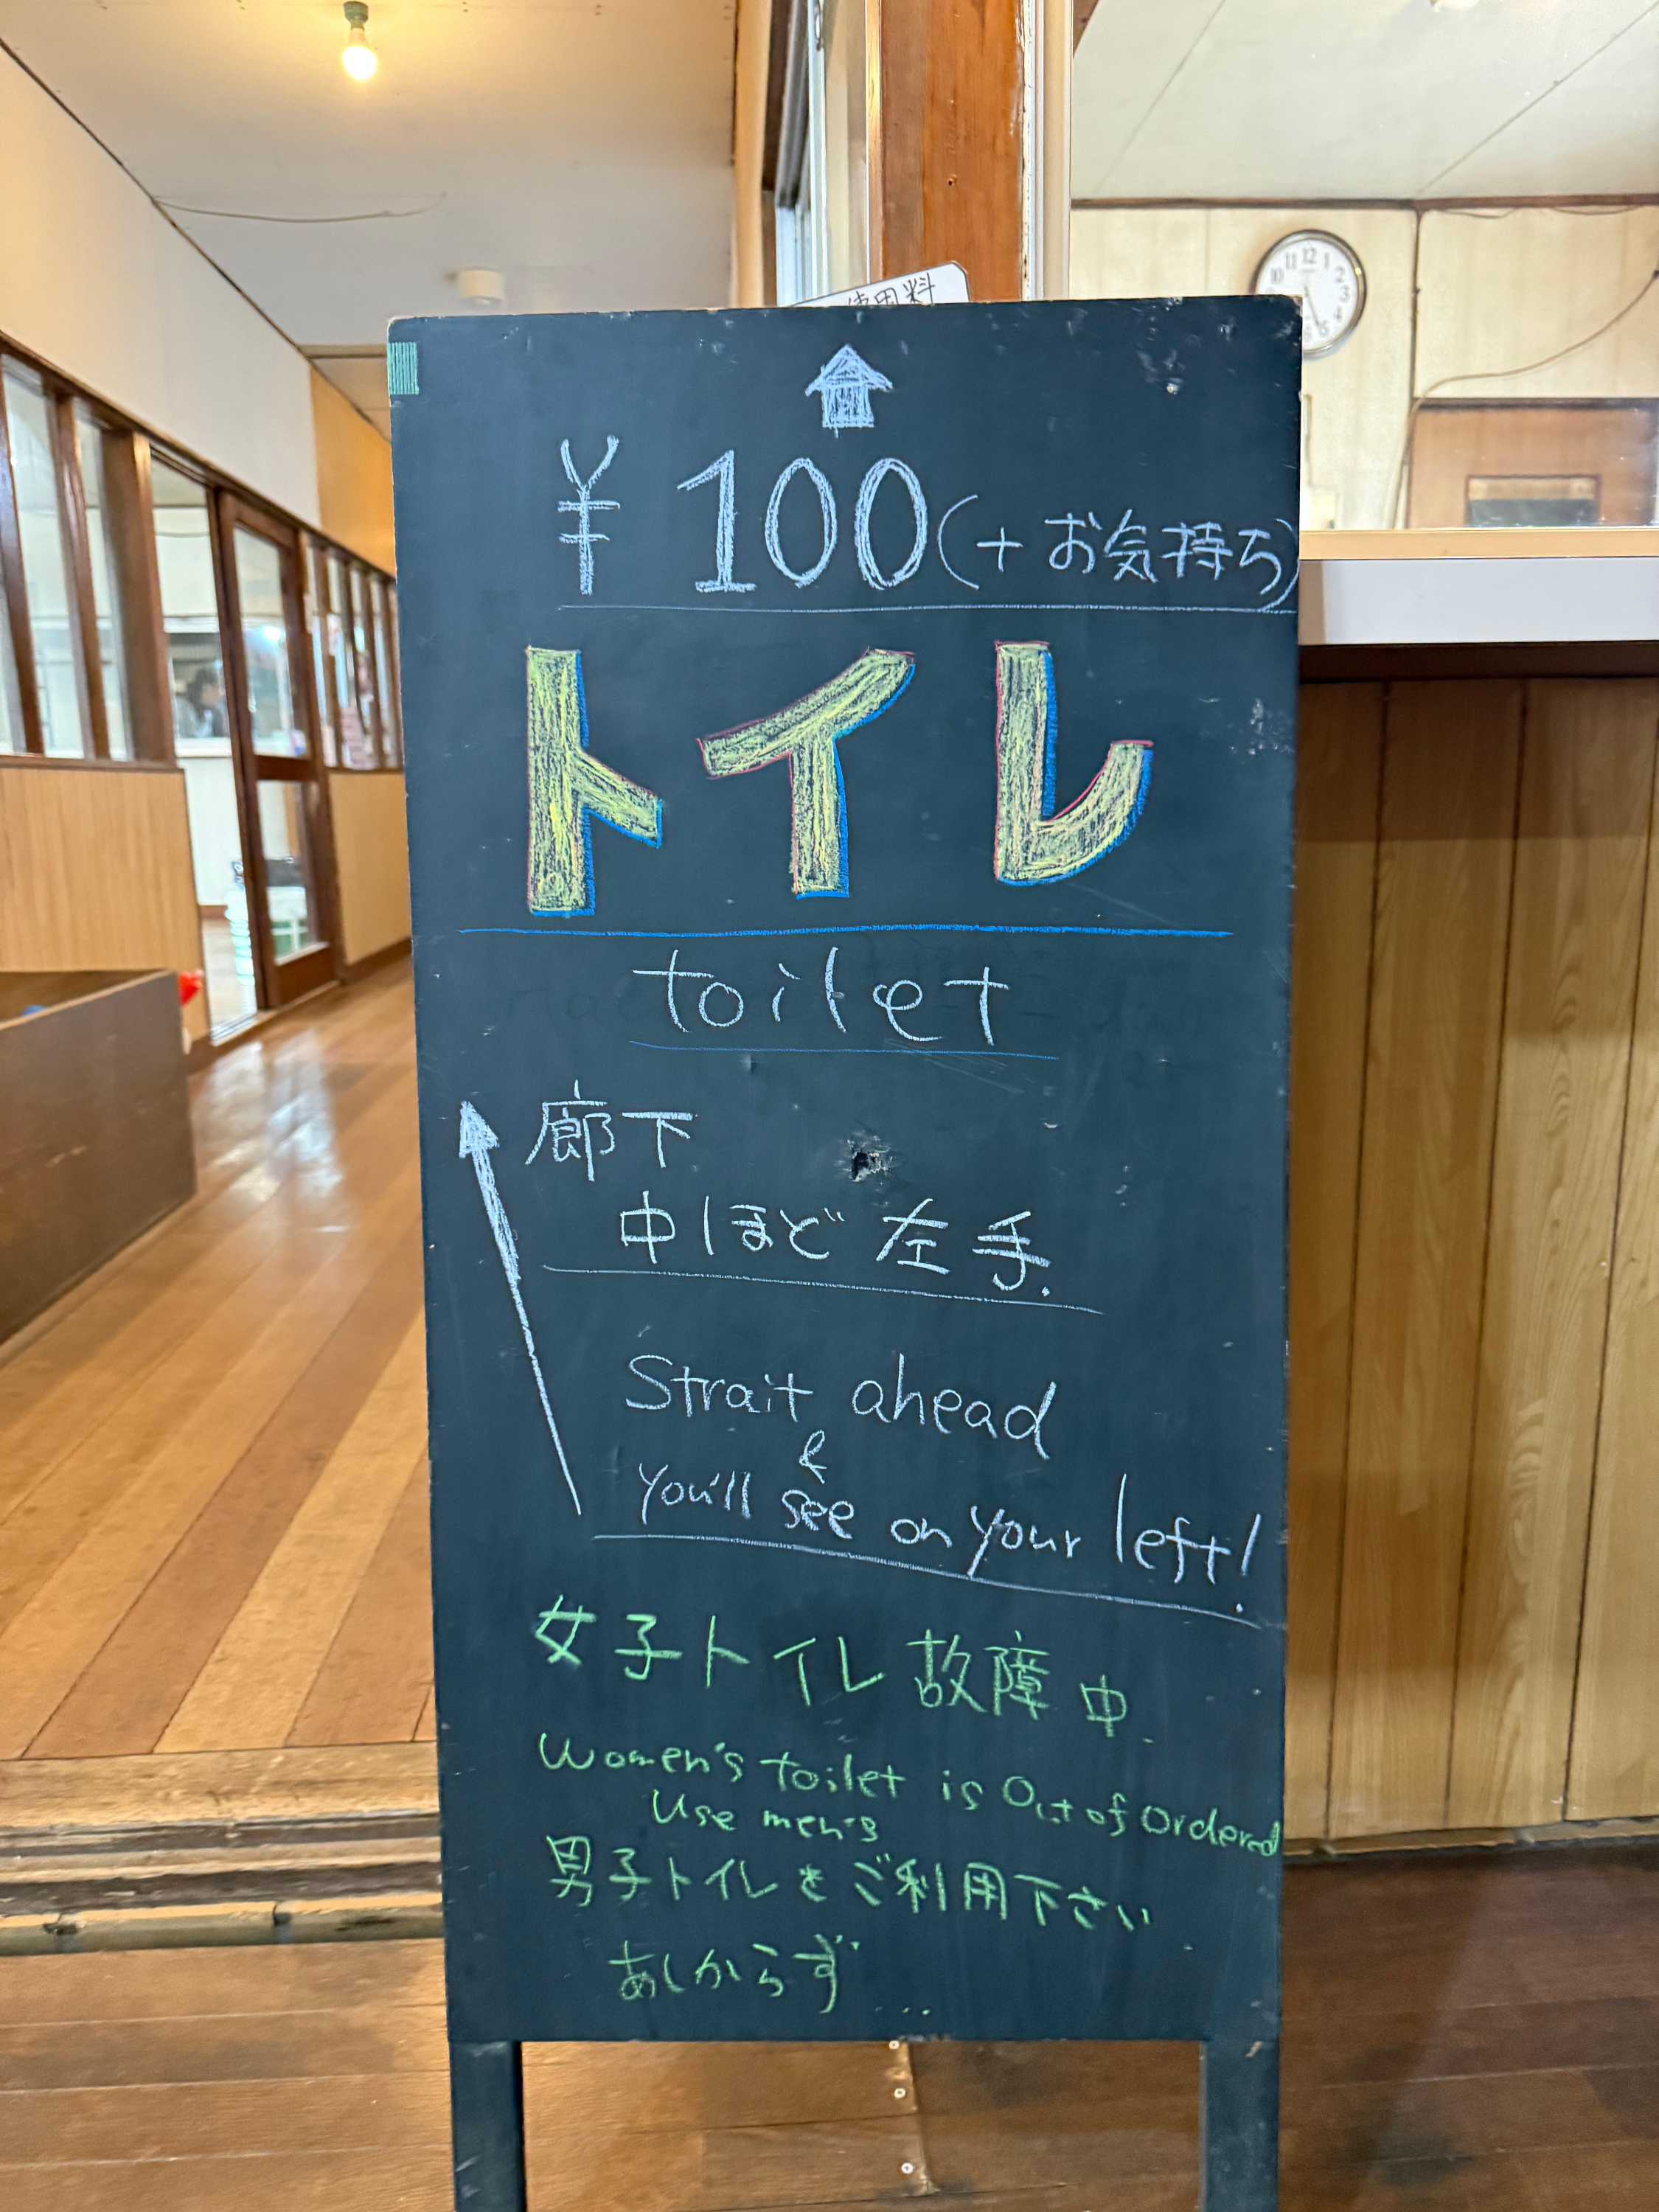 使用料
¥100(+お気持ち)
トイレ
toilet
廊下
中ほど左手.
Strait ahead
&
you'll see on your left!
女子トイレ故障中.
Women's toilet is Out of Ordered
Use men's
男子トイレをご利用下さい
あしからず...
12 1 2 3 4 5 6 10 11